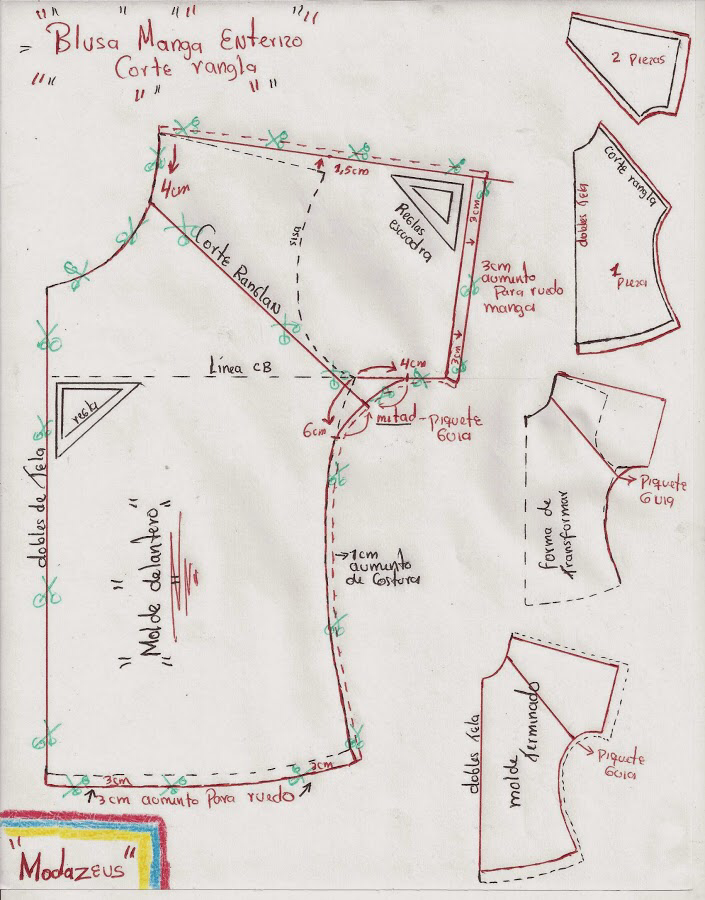 = "Blusa Manga Enterizo"
Corte rangla
4cm
1,5cm
sisa
Reglas
escuadra
3cm
3cm
3cm
aumento
Para ruedo
manga
Corte Ranglan
Línea CB
4cm
6cm
mitad - piquete
Guia
regla
dobles de Tela
"Molde delantero"
1cm
aumento
de Costura
3cm
3cm
3cm aumento Para ruedo
"Modazeus"
2 Piezas
Corte rangla
dobles Tela
1
Pieza
Piquete
Guia
forma de
Transformar
dobles Tela
molde Terminado
Piquete
Guia